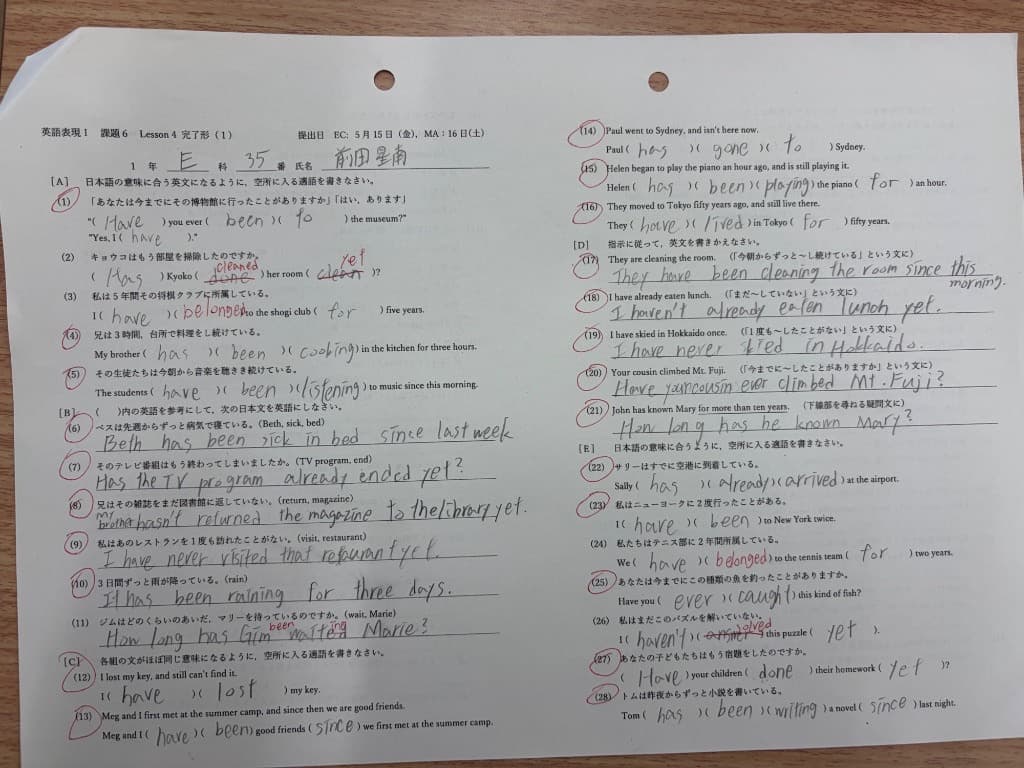 英語表現1 課題6 Lesson 4 完了形(1) 提出日 EC: 5月15日(金), MA:16日(土)
1 年 E 科 35 番 氏名 前田 星南
[A] 日本語の意味に合う英文になるように,空所に入る適語を書きなさい。
(1) 「あなたは今までにその博物館に行ったことがありますか」「はい,あります」
"( Have ) you ever ( been )( to ) the museum?"
"Yes, I ( have )."
(2) キョウコはもう部屋を掃除したのですか。
cleaned yet
( Has ) Kyoko ( done ) her room ( clean )?
(3) 私は5年間その将棋クラブに所属している。
I ( have )( belonged to the shogi club ( for ) five years.
(4) 兄は3時間,台所で料理をし続けている。
My brother ( has )( been )( cooking) in the kitchen for three hours.
(5) その生徒たちは今朝から音楽を聴き続けている。
The students ( have )( been )(listening) to music since this morning.
[B] ( )内の英語を参考にして,次の日本文を英語にしなさい。
(6) ベスは先週からずっと病気で寝ている。(Beth, sick, bed)
Beth has been sick in bed since last week
(7) そのテレビ番組はもう終わってしまいましたか。(TV program, end)
Has the TV program already ended yet?
(8) 兄はその雑誌をまだ図書館に返していない。(return, magazine)
my brother hasn't returned the magazine to the library yet.
(9) 私はあのレストランを1度も訪れたことがない。(visit, restaurant)
I have never visited that restaurant yet.
(10) 3日間ずっと雨が降っている。(rain)
It has been raining for three days.
(11) ジムはどのくらいのあいだ,マリーを待っているのですか。(wait, Marie)
How long has Gim been waiting Marie?
[C] 各組の文がほぼ同じ意味になるように,空所に入る適語を書きなさい。
(12) I lost my key, and still can't find it.
I ( have )( lost ) my key.
(13) Meg and I first met at the summer camp, and since then we are good friends.
Meg and I ( have )( been) good friends ( since ) we first met at the summer camp.
(14) Paul went to Sydney, and isn't here now.
Paul ( has )( gone )( to ) Sydney.
(15) Helen began to play the piano an hour ago, and is still playing it.
Helen ( has )( been )(playing) the piano ( for ) an hour.
(16) They moved to Tokyo fifty years ago, and still live there.
They ( have )( lived ) in Tokyo ( for ) fifty years.
[D] 指示に従って,英文を書きかえなさい。
(17) They are cleaning the room. (「今朝からずっと~し続けている」という文に)
They have been cleaning the room since this morning.
(18) I have already eaten lunch. (「まだ~していない」という文に)
I haven't already eaten lunch yet.
(19) I have skied in Hokkaido once. (「1度も~したことがない」という文に)
I have never skied in Hokkaido.
(20) Your cousin climbed Mt. Fuji. (「今までに~したことがありますか」という文に)
Have your cousin ever climbed Mt. Fuji?
(21) John has known Mary for more than ten years. (下線部を尋ねる疑問文に)
How long has he known Mary?
[E] 日本語の意味に合うように,空所に入る適語を書きなさい。
(22) サリーはすでに空港に到着している。
Sally ( has )( already )( arrived ) at the airport.
(23) 私はニューヨークに2度行ったことがある。
I ( have )( been ) to New York twice.
(24) 私たちはテニス部に2年間所属している。
We ( have )( belonged ) to the tennis team ( for ) two years.
(25) あなたは今までにこの種類の魚を釣ったことがありますか。
Have you ( ever )( caught ) this kind of fish?
(26) 私はまだこのパズルを解いていない。
solved
I ( haven't )( answer ) this puzzle ( yet ).
(27) あなたの子どもたちはもう宿題をしたのですか。
( Have ) your children ( done ) their homework ( yet )?
(28) トムは昨夜からずっと小説を書いている。
Tom ( has )( been )(writing) a novel ( since ) last night.